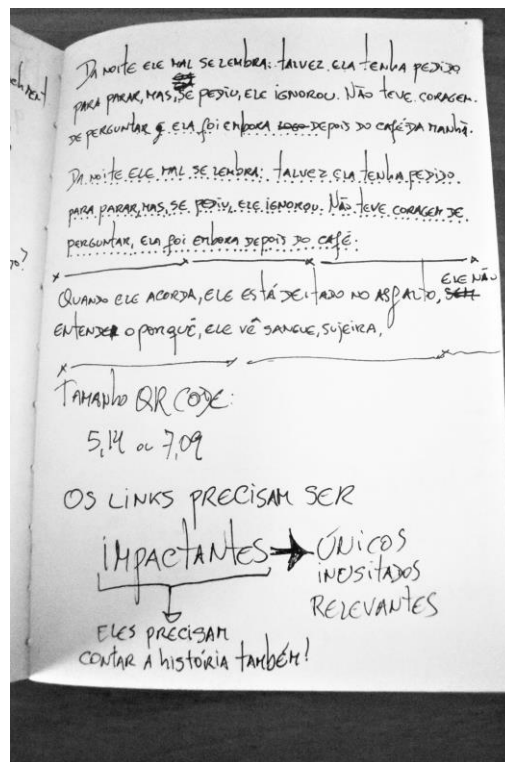 Da noite ele mal se lembra: talvez ela tenha pedido
para parar, mas, se pediu, ele ignorou. Não teve coragem
de perguntar e ela foi embora logo depois do café da manhã.
Da noite ele mal se lembra: talvez ela tenha pedido
para parar, mas, se pediu, ele ignorou. Não teve coragem de
perguntar, ela foi embora depois do café.
ele não
Quando ele acorda, ele está deitado no asfalto, sem
entender o porquê, ele vê sangue, sujeira,
Tamanho QR Code:
5,14 ou 7,09
Os links precisam ser
impactantes → únicos
inusitados
relevantes
eles precisam
contar a história também!